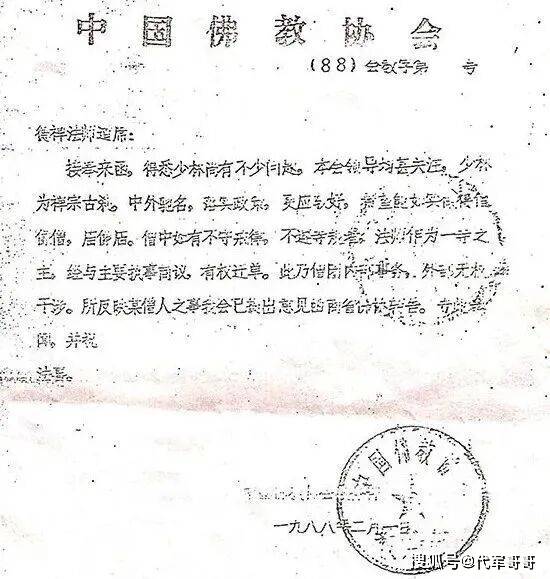 中国佛教协会
（88）会教字第 号
德禅法师莲席：
接奉来函，得悉少林尚有不少问题，本会领导均甚关注，少林
为禅宗古刹，中外驰名，落实政策，更应
僧，居僧居。僧中如有不守戒律，不遵寺规者，法师作为一寺之
主，经与主要执事商议，有权迁单。此乃僧团内部事务，外部无权
干涉。所反映某僧人之事我会已提出意见
闻，并祝
法
中国佛教协
一九八八年二月一日
搜狐号@代军哥哥